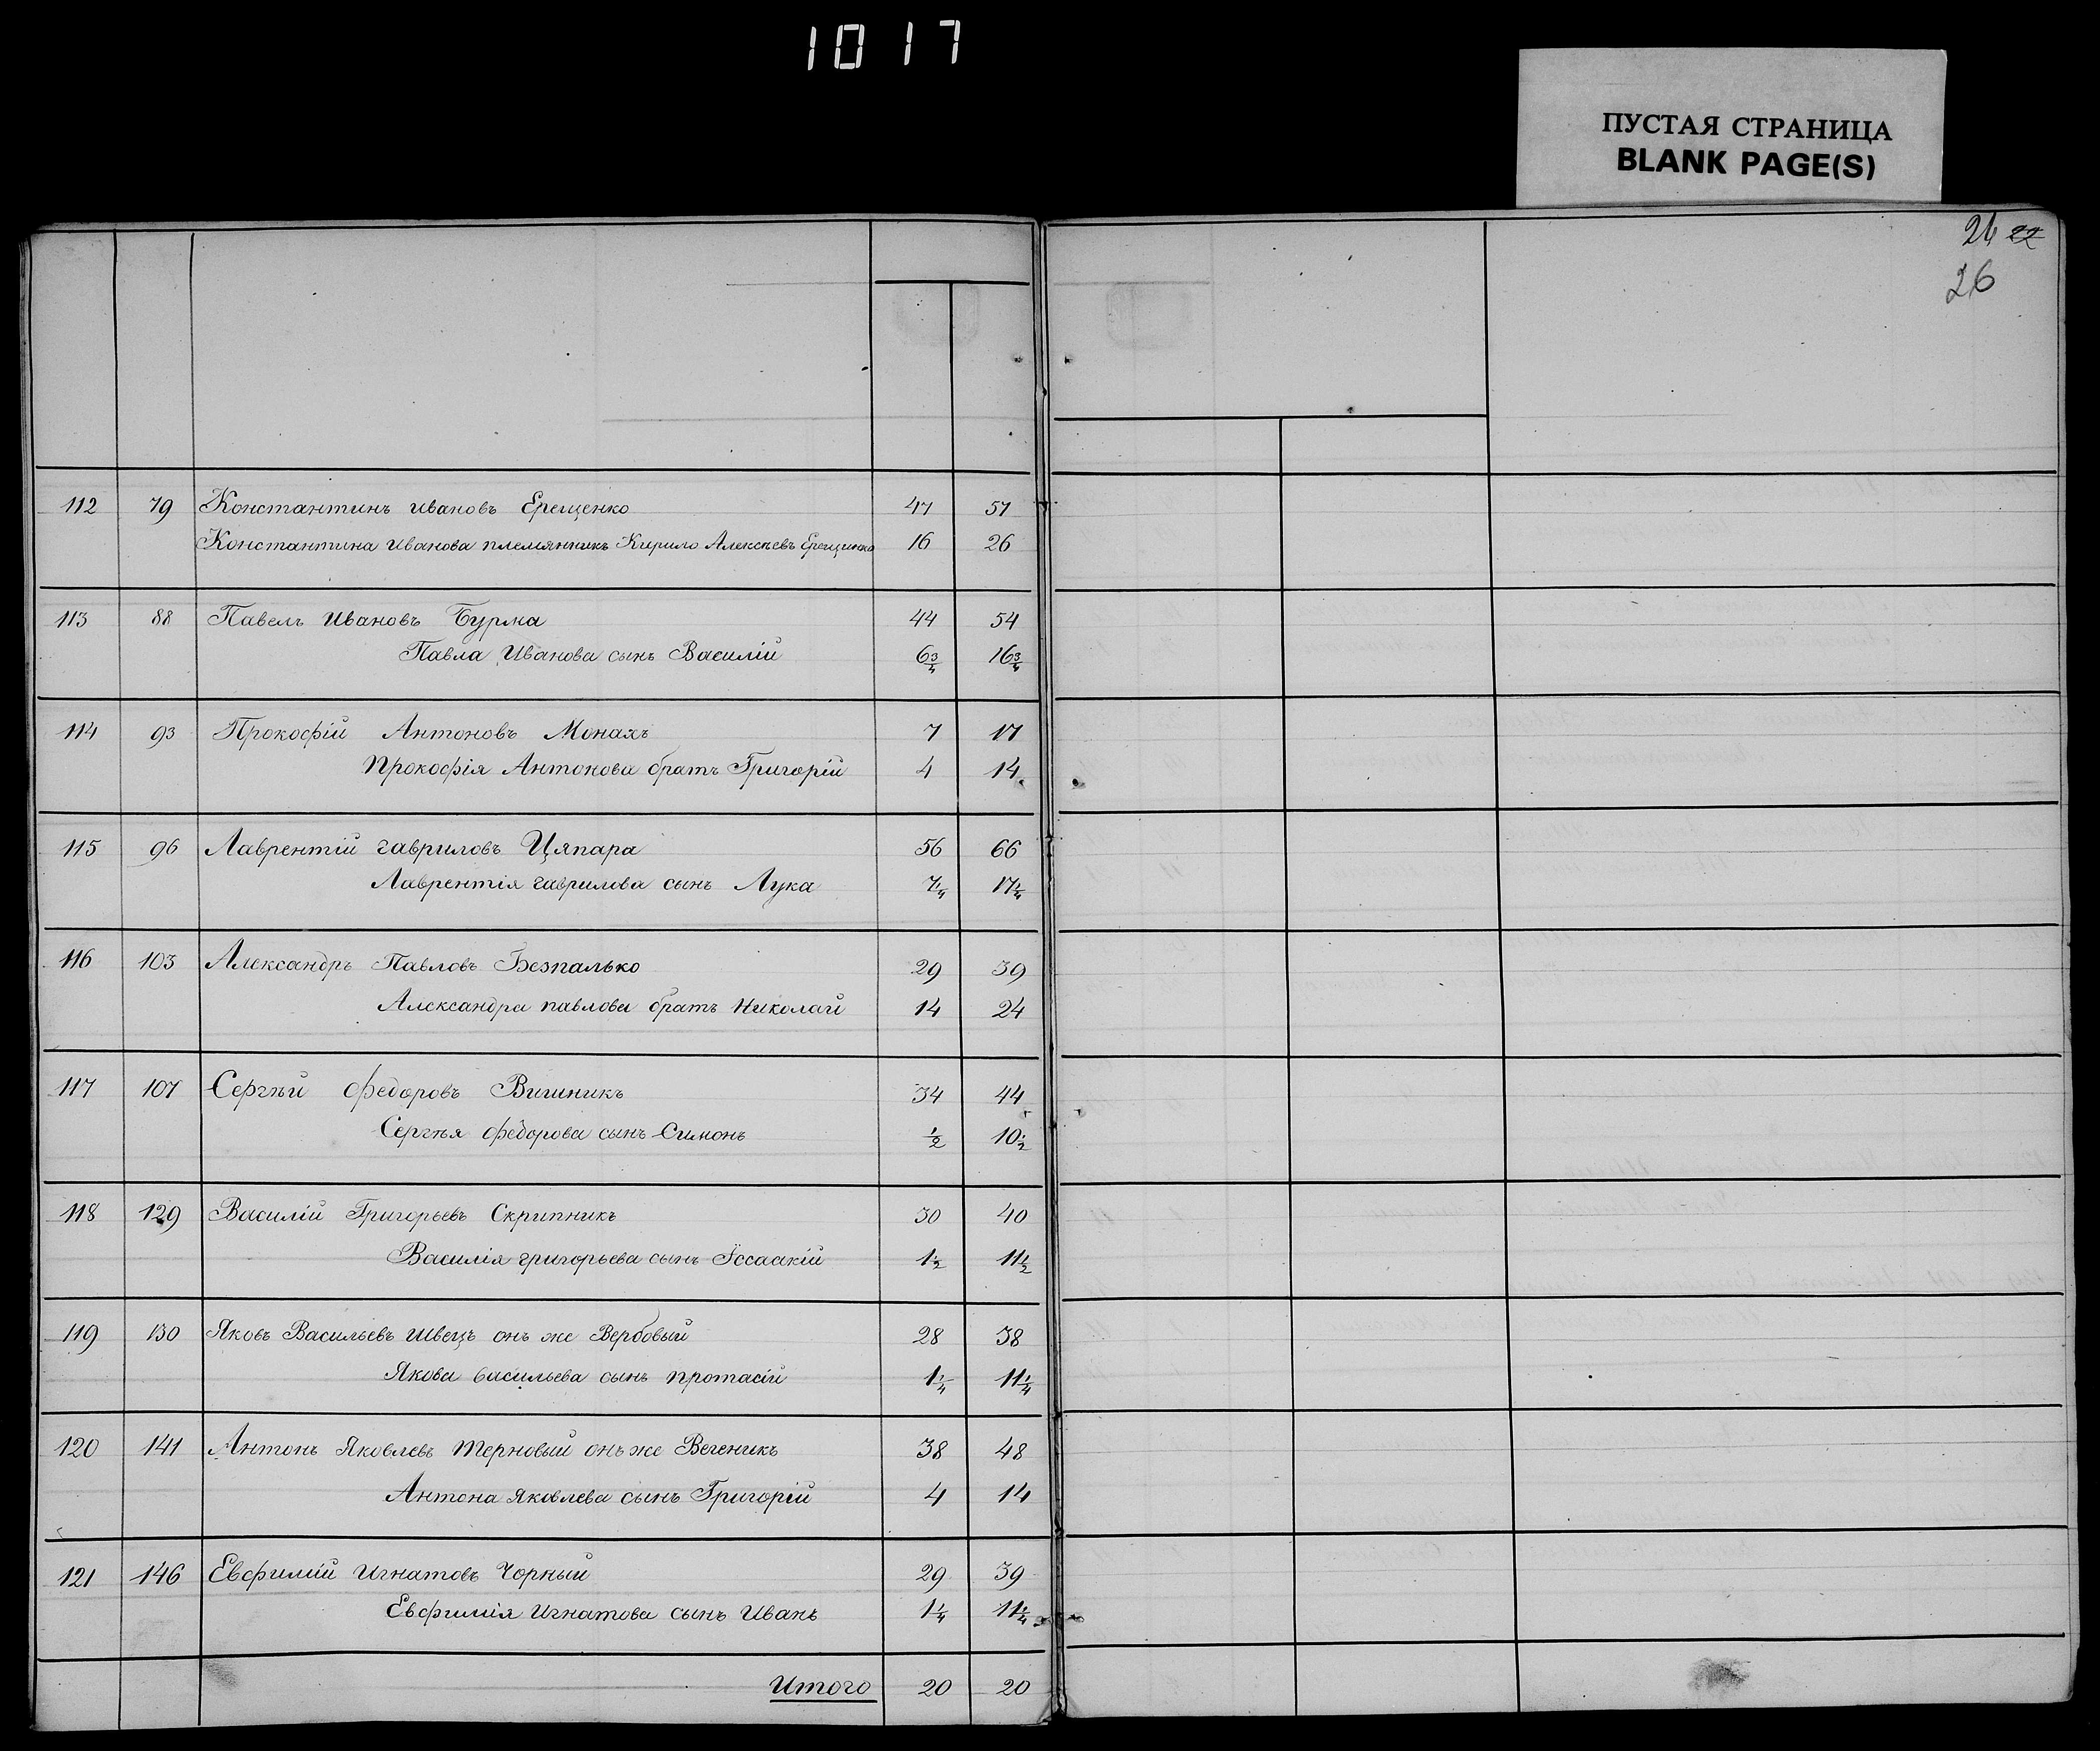 1017
ПУСТАЯ СТРАНИЦА
BLANK PAGE(S)
24 22
26
112 79 Константинъ Ивановъ Ерещенко 47 57
Константина Иванова племянникъ Кирило Алексѣевъ Ерещенко 16 26
113 88 Павелъ Ивановъ Бурма 44 54
Павла Иванова сынъ Василій 6 3/4 16 3/4
114 93 Прокофій Антоновъ Монахъ 7 17
Прокофія Антонова братъ Григорій 4 14
115 96 Лаврентій Гавриловъ Цяпара 56 66
Лаврентія Гаврилова сынъ Лука 7 1/4 17 1/4
116 103 Александръ Павловъ Безпалько 29 39
Александра Павлова братъ Николай 14 24
117 107 Сергѣй Федоровъ Вишникъ 34 44
Сергѣя Федорова сынъ Симонъ 1/2 10 1/2
118 129 Василій Григорьевъ Скрипникъ 30 40
Василія Григорьева сынъ Їссаакій 1 1/2 11 1/2
119 130 Яковъ Васильевъ Швецъ онъ же Вербовый 28 38
Якова Васильева сынъ Протасій 1 1/4 11 1/4
120 141 Антонъ Яковлевъ Терновый онъ же Вегеникъ 38 48
Антона Яковлева сынъ Григорій 4 14
121 146 Евфимій Игнатовъ Чорный 29 39
Евфимія Игнатова сынъ Иванъ 1 1/4 11 1/4
Итого 20 20